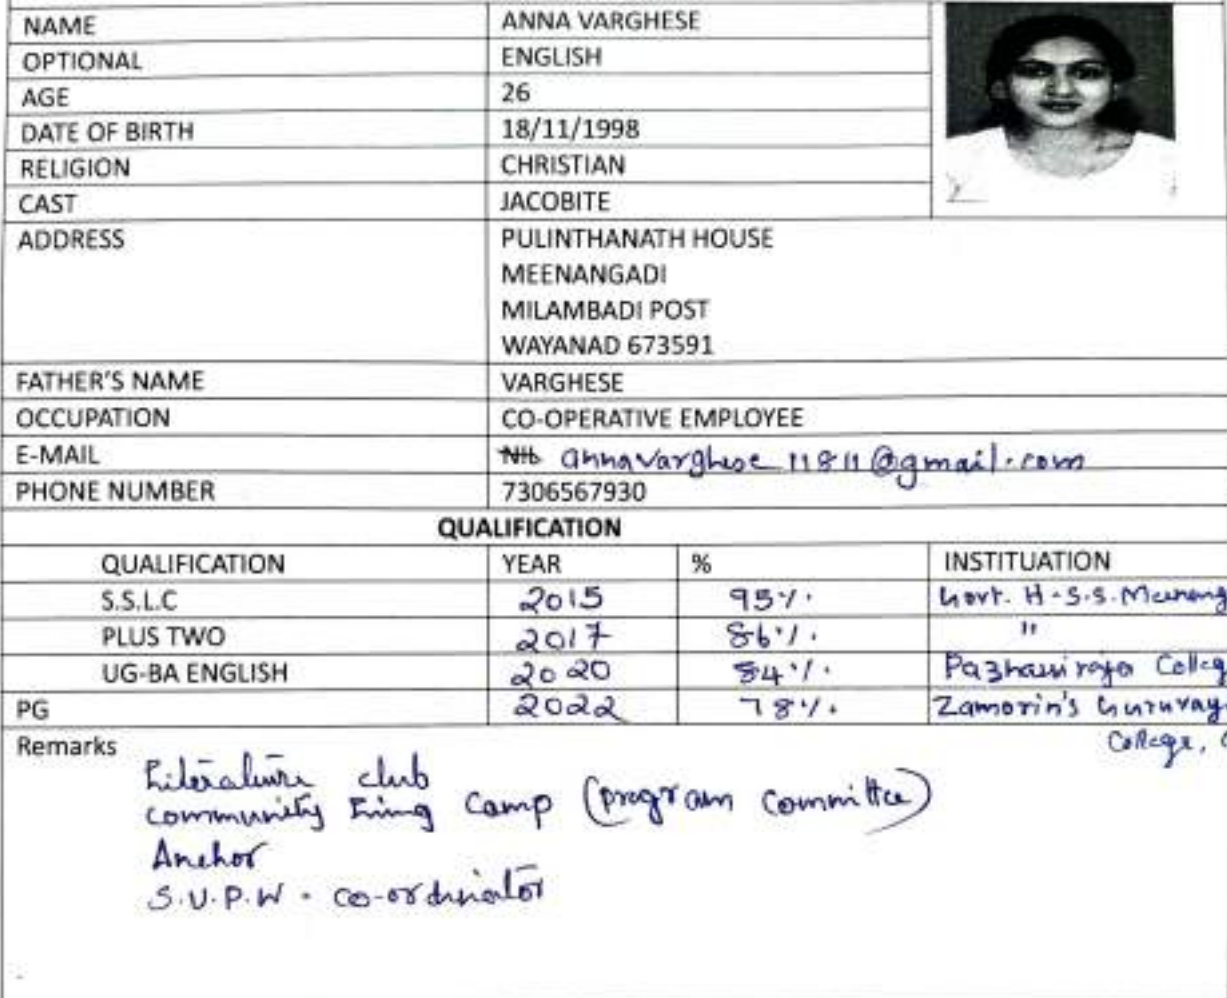 NAME ANNA VARGHESE
OPTIONAL ENGLISH
AGE 26
DATE OF BIRTH 18/11/1998
RELIGION CHRISTIAN
CAST JACOBITE
ADDRESS PULINTHANATH HOUSE
MEENANGADI
MILAMBADI POST
WAYANAD 673591
FATHER'S NAME VARGHESE
OCCUPATION CO-OPERATIVE EMPLOYEE
E-MAIL annavarghese11811@gmail.com
PHONE NUMBER 7306567930
QUALIFICATION
QUALIFICATION YEAR % INSTITUATION
S.S.L.C 2015 95% Govt. H.S.S.
PLUS TWO 2017 86% "
UG-BA ENGLISH 2020 84% Pazhassiraja Colleg
PG 2022 78% Zamorin's Guruvay
College,
Remarks
Literature club
community living camp (program committee)
Anchor
S.U.P.W - co-ordinator